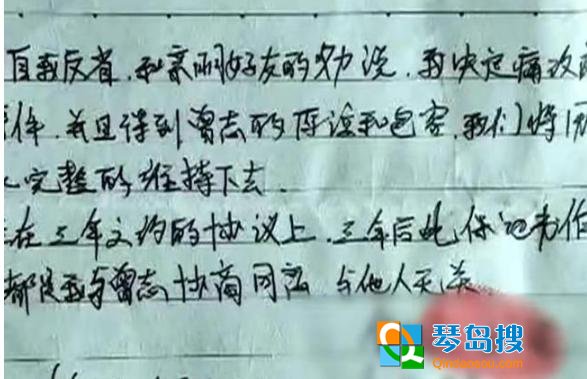 自我反省，和亲朋好友的劝说，我决定痛改
并且得到曾志的原谅和包容，我们将
完整的维持下去．
在三年之约的协议上，三年后此保证书作
都是我与曾志协商同意 与他人无关
琴岛搜
Qindaosou.com